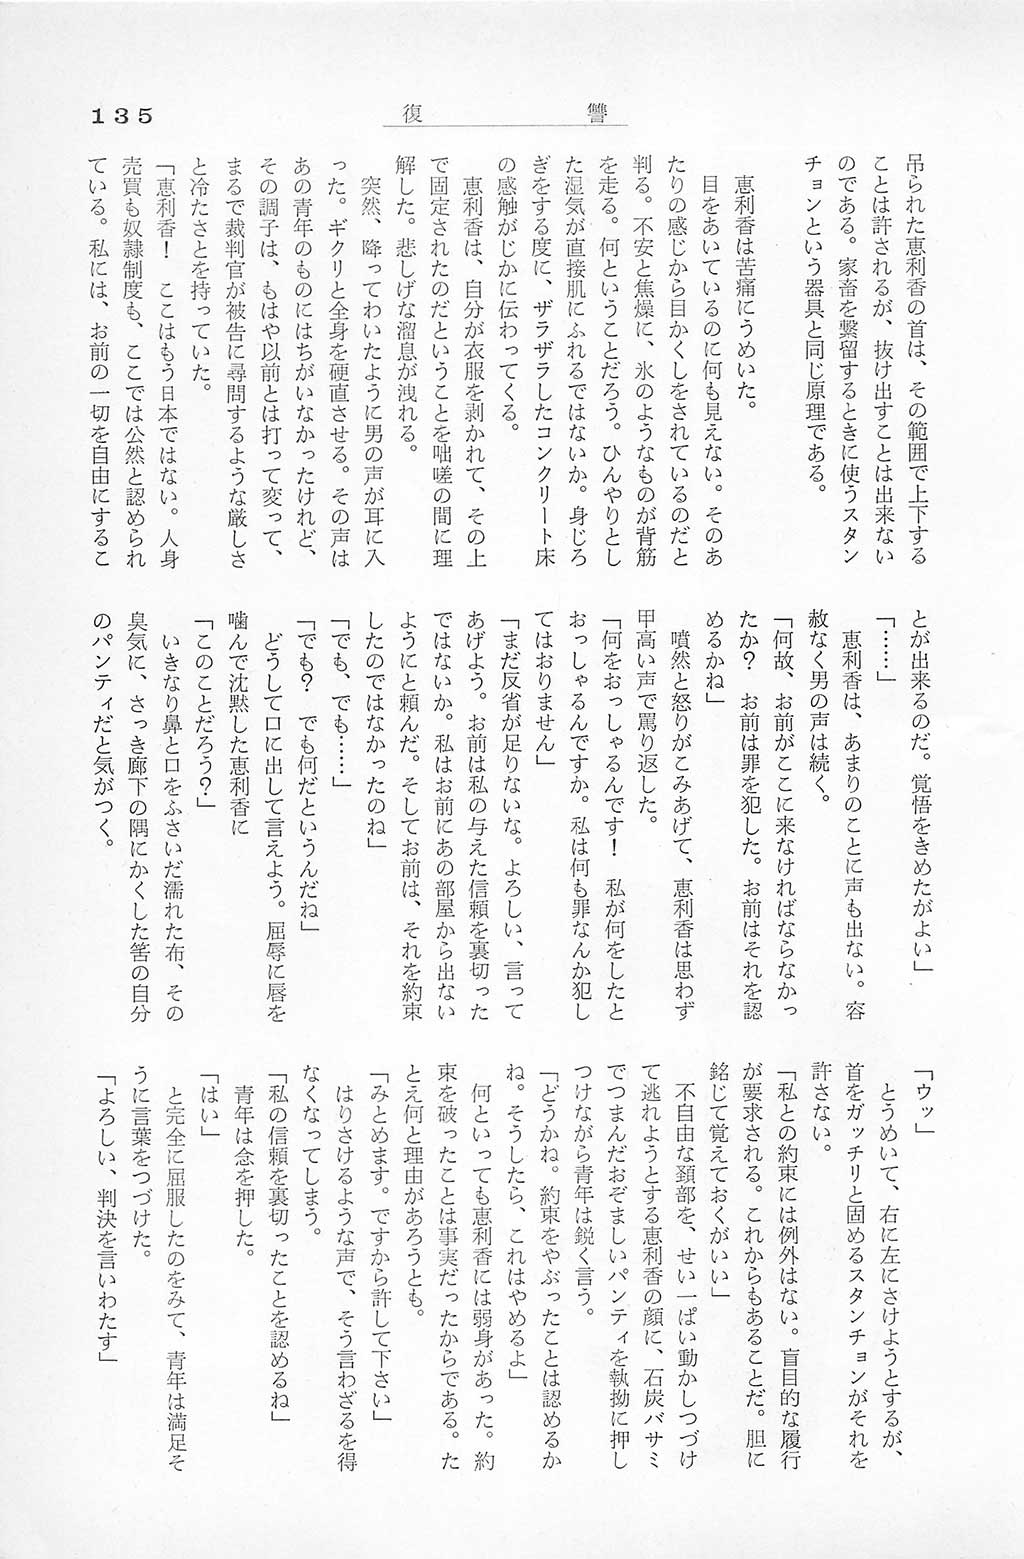 135
復讐
吊られた恵利香の首は、その範囲で上下する
ことは許されるが、抜け出すことは出来ない
のである。家畜を繋留するときに使うスタン
チョンという器具と同じ原理である。
恵利香は苦痛にうめいた。
目をあいているのに何も見えない。そのあ
たりの感じから目かくしをされているのだと
判る。不安と焦燥に、氷のようなものが背筋
を走る。何ということだろう。ひんやりとし
た湿気が直接肌にふれるではないか。身じろ
ぎをする度に、ザラザラしたコンクリート床
の感触がじかに伝わってくる。
恵利香は、自分が衣服を剥かれて、その上
で固定されたのだということを咄嗟の間に理
解した。悲しげな溜息が洩れる。
突然、降ってわいたように男の声が耳に入
った。ギクリと全身を硬直させる。その声は
あの青年のものにはちがいなかったけれど、
その調子は、もはや以前とは打って変って、
まるで裁判官が被告に尋問するような厳しさ
と冷たさとを持っていた。
「恵利香！　ここはもう日本ではない。人身
売買も奴隷制度も、ここでは公然と認められ
ている。私には、お前の一切を自由にするこ
とが出来るのだ。覚悟をきめたがよい」
「……」
恵利香は、あまりのことに声も出ない。容
赦なく男の声は続く。
「何故、お前がここに来なければならなかっ
たか？　お前は罪を犯した。お前はそれを認
めるかね」
噴然と怒りがこみあげて、恵利香は思わず
甲高い声で罵り返した。
「何をおっしゃるんです！　私が何をしたと
おっしゃるんですか。私は何も罪なんか犯し
てはおりません」
「まだ反省が足りないな。よろしい、言って
あげよう。お前は私の与えた信頼を裏切った
ではないか。私はお前にあの部屋から出ない
ようにと頼んだ。そしてお前は、それを約束
したのではなかったのね」
「でも、でも……」
「でも？　でも何だというんだね」
どうして口に出して言えよう。屈辱に唇を
噛んで沈黙した恵利香に
「このことだろう？」
いきなり鼻と口をふさいだ濡れた布、その
臭気に、さっき廊下の隅にかくした筈の自分
のパンティだと気がつく。
「ウッ」
とうめいて、右に左にさけようとするが、
首をガッチリと固めるスタンチョンがそれを
許さない。
「私との約束には例外はない。盲目的な履行
が要求される。これからもあることだ。胆に
銘じて覚えておくがいい」
不自由な頚部を、せい一ぱい動かしつづけ
て逃れようとする恵利香の顔に、石炭バサミ
でつまんだおぞましいパンティを執拗に押し
つけながら青年は鋭く言う。
「どうかね。約束をやぶったことは認めるか
ね。そうしたら、これはやめるよ」
何といっても恵利香には弱身があった。約
束を破ったことは事実だったからである。た
とえ何と理由があろうとも。
「みとめます。ですから許して下さい」
はりさけるような声で、そう言わざるを得
なくなってしまう。
「私の信頼を裏切ったことを認めるね」
青年は念を押した。
「はい」
と完全に屈服したのをみて、青年は満足そ
うに言葉をつづけた。
「よろしい、判決を言いわたす」